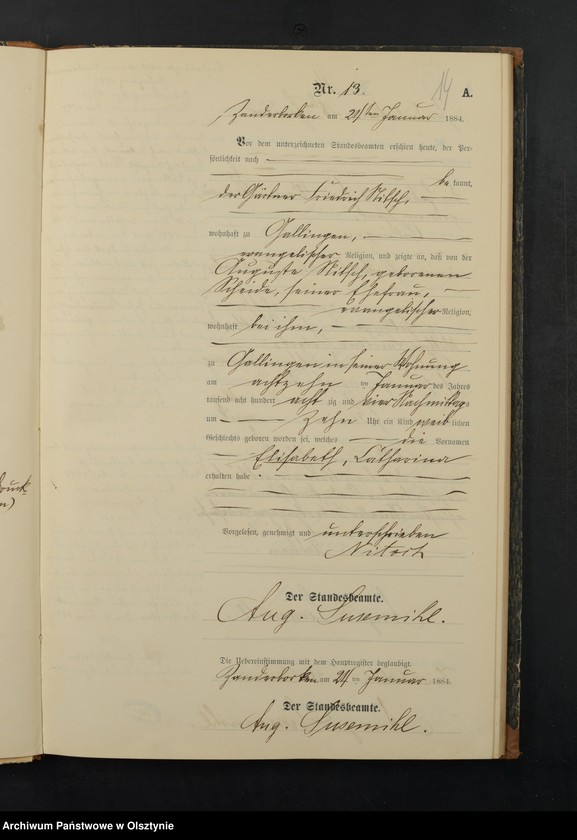 Nr. 13.
14
A.
Zanderborken am 21ten Januar 1884.
Vor dem unterzeichneten Standesbeamten erschien heute, der Per-
sönlichkeit nach
be kannt,
der Gärtner Friedrich Nitsch,
wohnhaft zu Gallingen,
evangelischer Religion, und zeigte an, daß von der
Auguste Nitsch, geborenen
Scheide, seiner Ehefrau,
evangelischer Religion,
wohnhaft bei ihm,
zu Gallingen in seiner Wohnung
am achtzehn ten Januar des Jahres
tausend acht hundert acht zig und vier Nachmittags
um zehn Uhr ein Kind weib lichen
Geschlechts geboren worden sei, welches die Vornamen
Elisabeth, Catharina
erhalten habe.
Vorgelesen, genehmigt und unterschrieben
Nitsch
Der Standesbeamte.
Aug. Susemihl.
Die Uebereinstimmung mit dem Hauptregister beglaubigt.
Zanderborken am 21 ten Januar 1884.
Der Standesbeamte.
Aug. Susemihl.
Archiwum Państwowe w Olsztynie